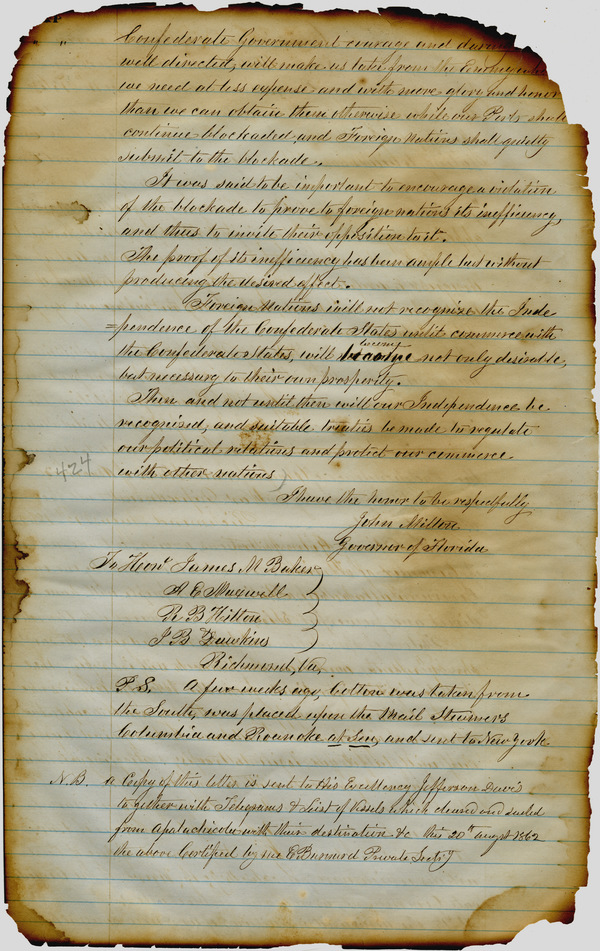 " "
Confederate Government courage and daring
well directed, will make us take from the Enemy what
we need at less expense and with more glory and honor
than we can obtain them otherwise while our Ports shall
continue blockaded and Foreign Nations shall quietly
submit to the blockade.
It was said to be important to encourage a violation
of the blockade to prove to foreign nations its inefficiency,
and thus to invite their opposition to it.
The proof of its inefficiency has been ample but without
producing the desired affect.
Foreign Nations will not recognize the Inde
=pendence of the Confederate States until commerce with
become
the Confederate States, will become not only desirable,
but necessary to their own prosperity.
Then and not until then will our Independence be
recognised, and suitable treaties be made to regulate
our political relations and protect our commerce
with other nations
424
I have the honor to be respectfully
John Milton
Governor of Florida
To Honl James M Baker
A E Maxwell
R B Hilton
J B Dawkins
Richmond, Va,
P.S. A few weeks ago, Cotton was taken from
the South, was placed upon the Mail Steamers
Columbia and Roanoke at Sea, and sent to New York
N.B. a Copy of this letter is sent to His Excellency Jefferson Davis
to gether with Telegrams & List of Vessels which cleared and sailed
from Apalachicola with their destination &c this 20th augst 1862
the above Certified by me E Barnard Private Secty